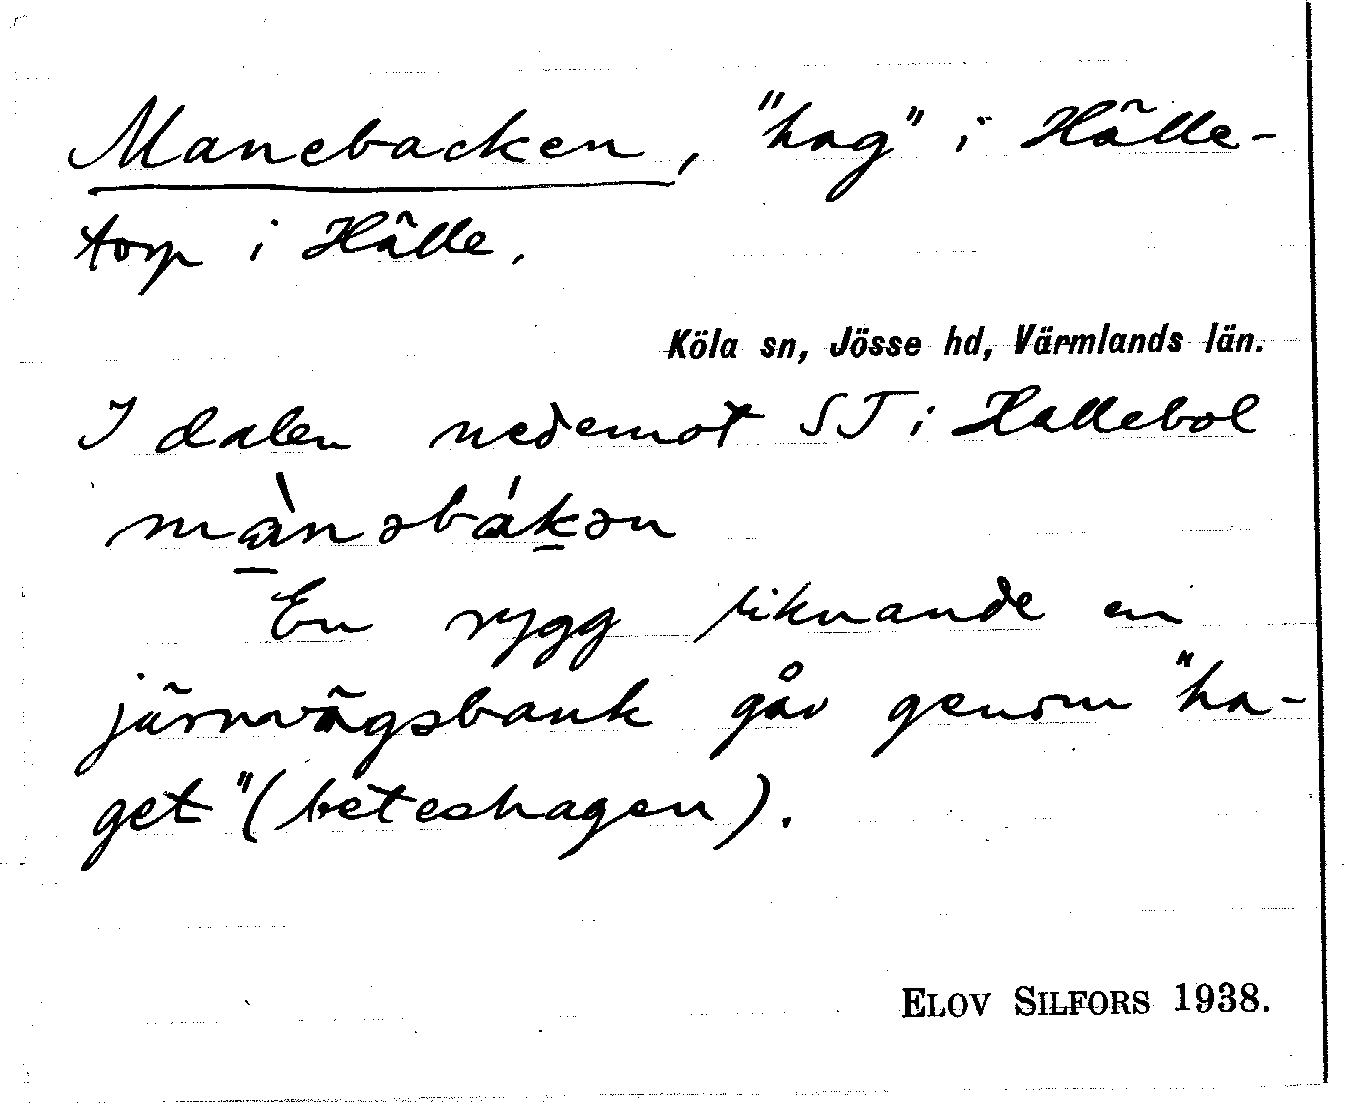 Manebacken, "hag" i Hälle-
torp i Hälle.
Köla sn, Jösse hd, Värmlands län.
I dalen nedemot SJ i Hallebol
mànəbákən
En rygg liknande en
järnvägsbank går genom "ha-
get" (beteshagen).
ELOV SILFORS 1938.